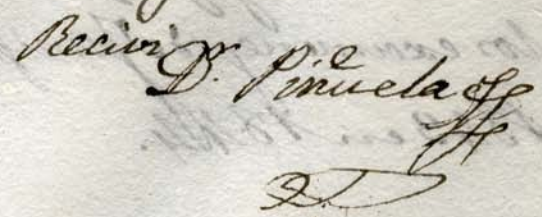 Recivi
Dr. Piñuela